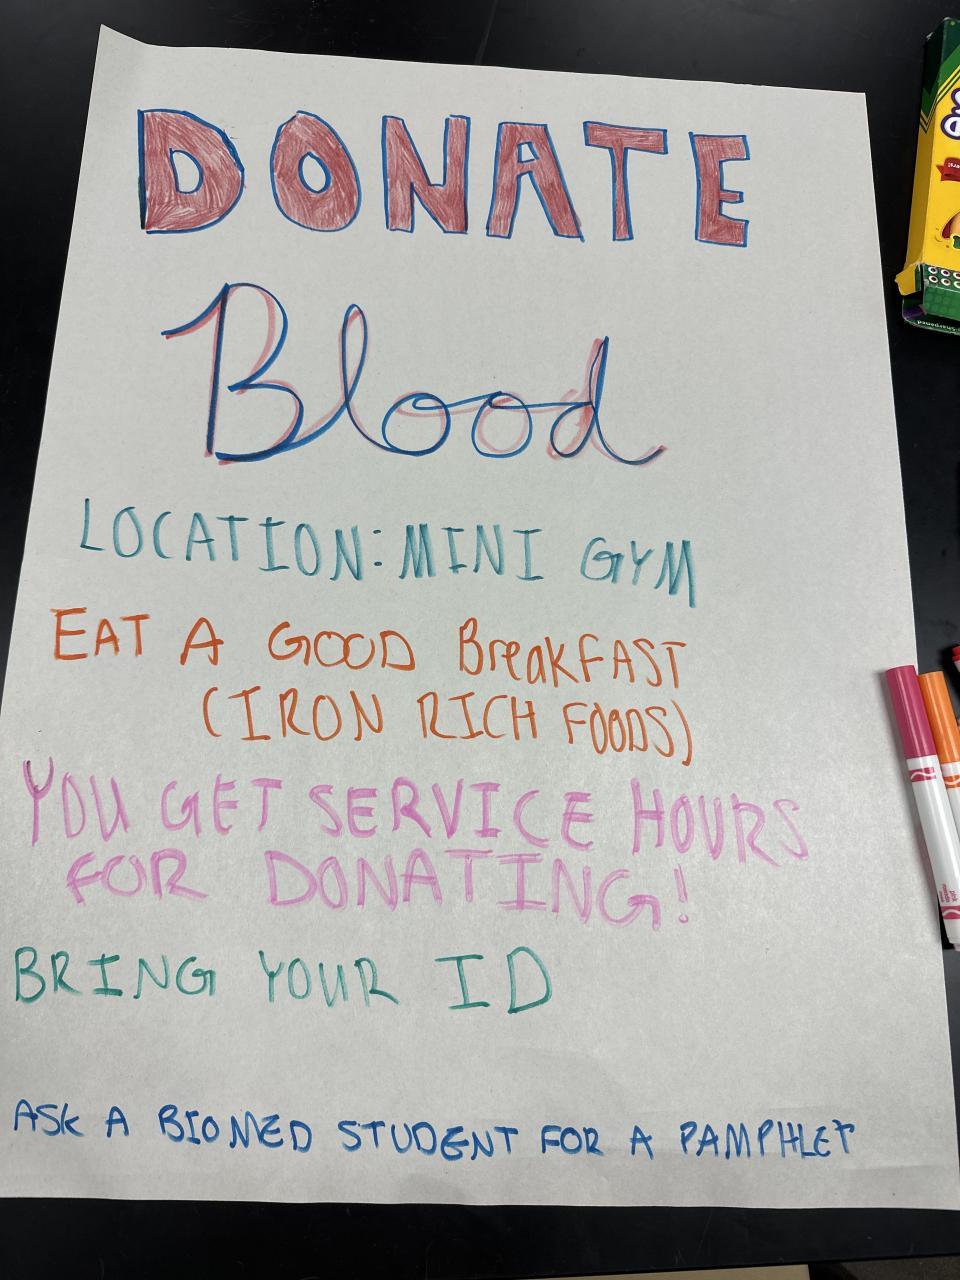 DONATE
Blood
LOCATION: MINI GYM
EAT A GOOD BreakFAST
(IRON RICH FOODS)
YOU GET SERVICE HOURS
FOR DONATING!
BRING YOUR ID
ASk A BIOMED STUDENT FOR A PAMPHLET